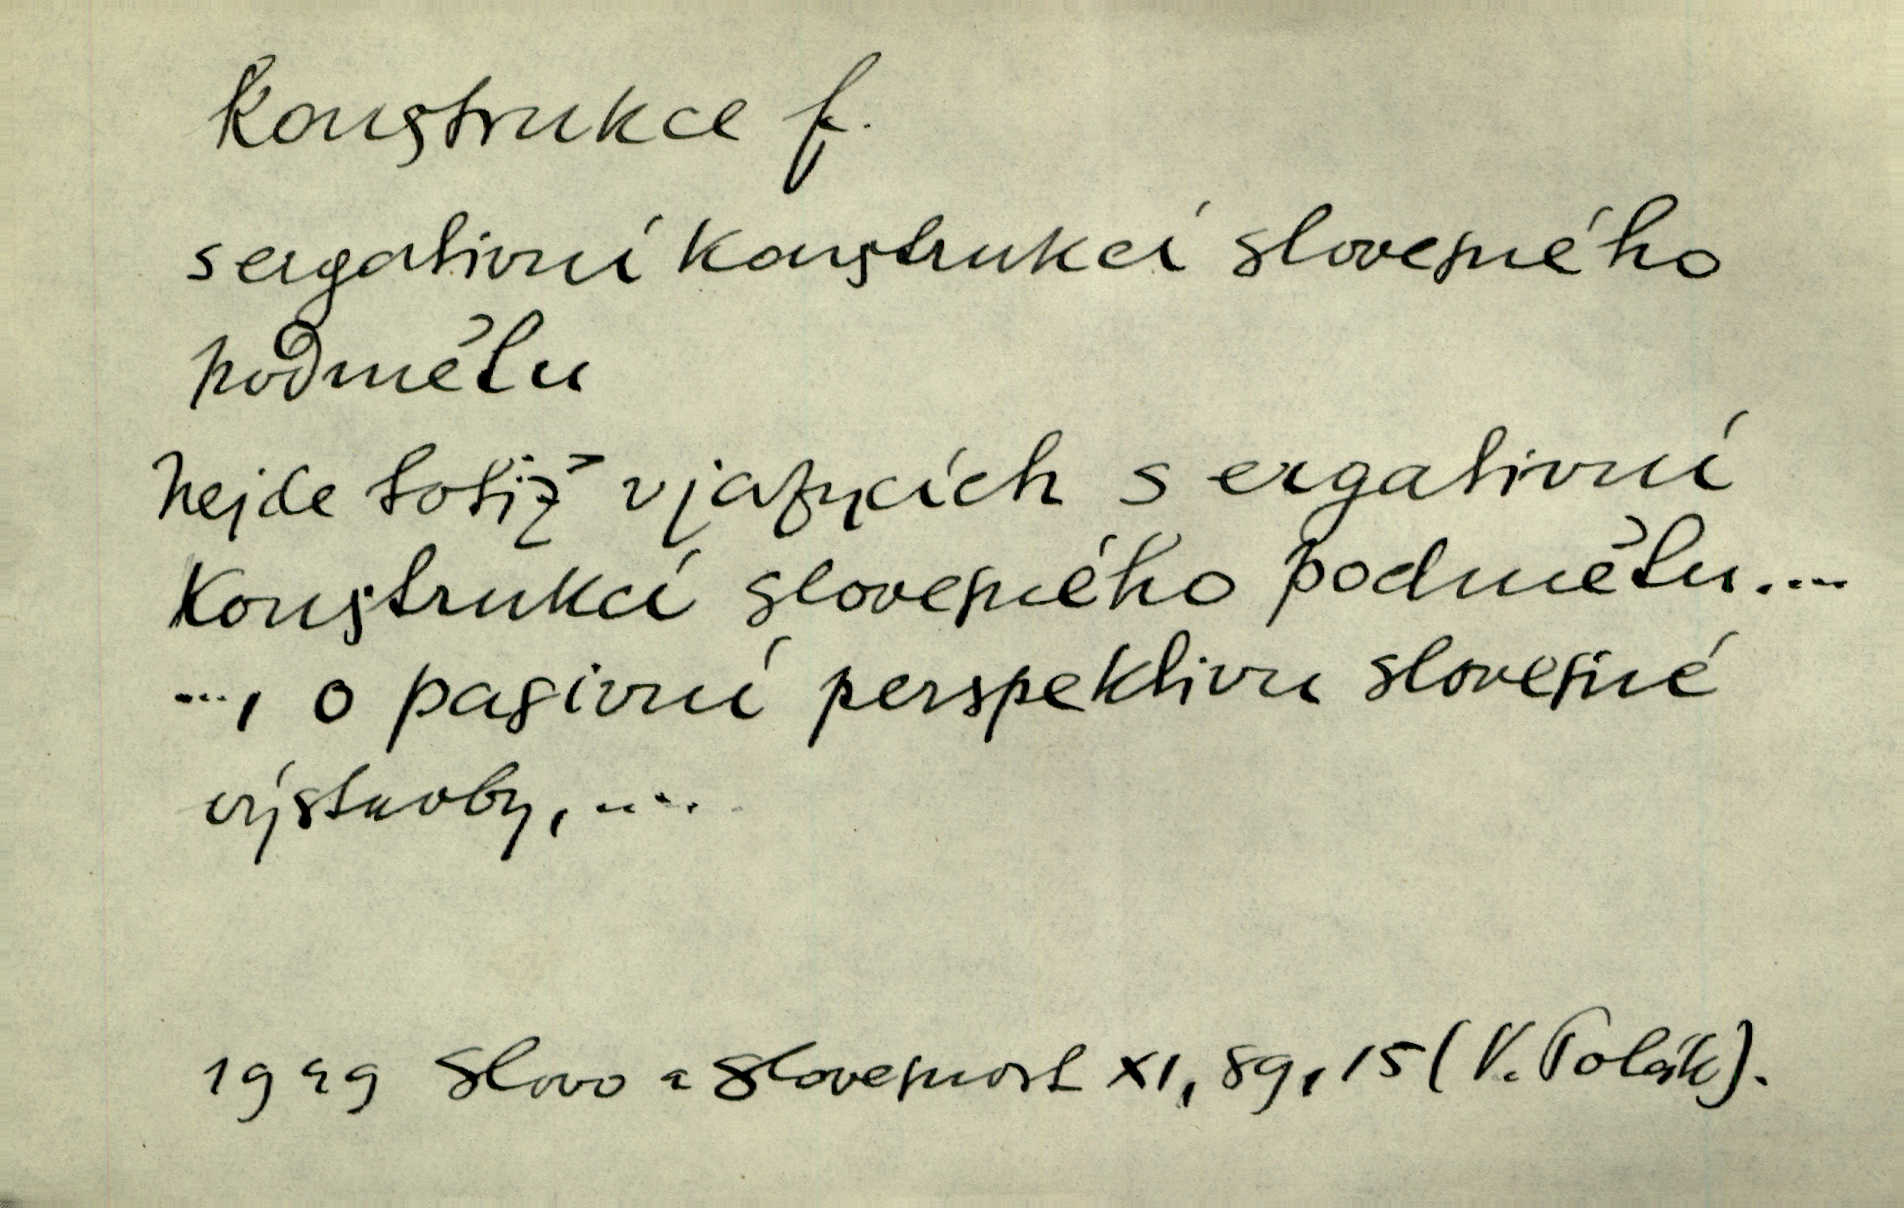 Konstrukce f.
s ergativní konstrukcí slovesného
podmětu
Nejde totiž v jazycích s ergativní
konstrukcí slovesného podmětu....
..., o pasivní perspektivu slovesné
výstavby, ....
1949 Slovo a slovesnost XI, 89, 15 (V. Polák).